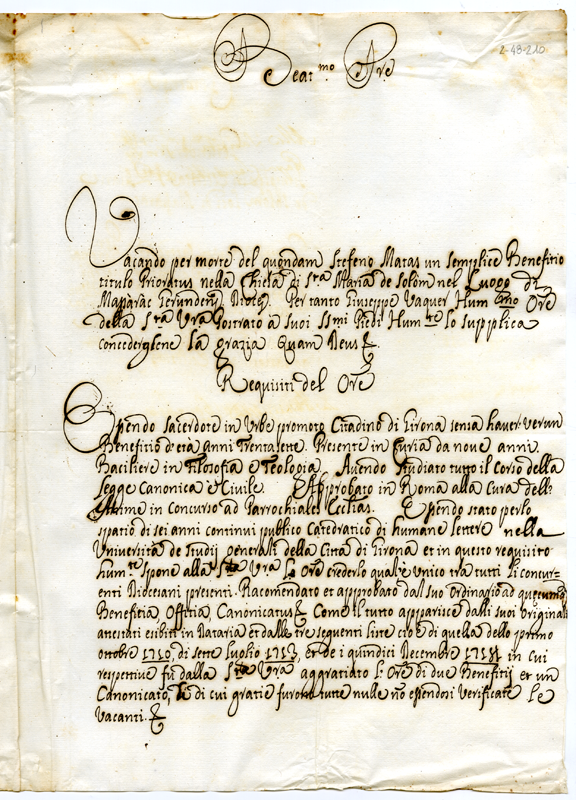 2-48-210
Beat.mo Pre
Vacando per morte del quondam Stefeno Matas un semplice Benefitio
titulo Prioratus nella Chiesa di S.ta Maria de Solòm nel Luogo di
Gerunden. Dioces. Per tanto Giuseppe Vaquer Hum Ore
della S.ta Vra Postrato a suoi SSmi Piedi Hum.te Lo supplica
concederglene La grazia Quam Deus &.
Requisiti del Ore
Essendo Sacerdote in Urbe promoto Cittadino di Girona senza haver verun
Benefitio d'età anni Trentasette. Presente in Curia da nove anni.
Baciliere in Filosofia è Teologia. Avendo studiato tutto il Corso della
Legge Canonica è Civile. Approbato in Roma alla Cura dell'
Anime in Concurso ad Parrochiales Ecclias. Essendo stato perlo
spatio di sei anni continui publico Catedratico di humane Lettere nella
Universita de Studij generali della Città di Girona et in questo requisito
hum.te spone alla S.ta Vra L'Ore crederlo qual'è unico tra tutti Li concurr-
enti Diocesani presenti. Racomendato et approbato dal suo Ordinario ad quecumq
Benefitia Offitia Canonicatus & Come il tutto apparisce dalli suoi Originali
attestati esibiti in Dataria et dalle tre seguenti Liste cioè di quella dello primo
ottobre 1750 di sette Luglio 1753, et de i quindici Decembre 1754 in cui
respective fù dalla S.ta Vra aggratiato L'Ore di due Benefitij et un
Canonicato, di cui gratie furono tutte nulle nō essendosi verificate Le
vacanti. &